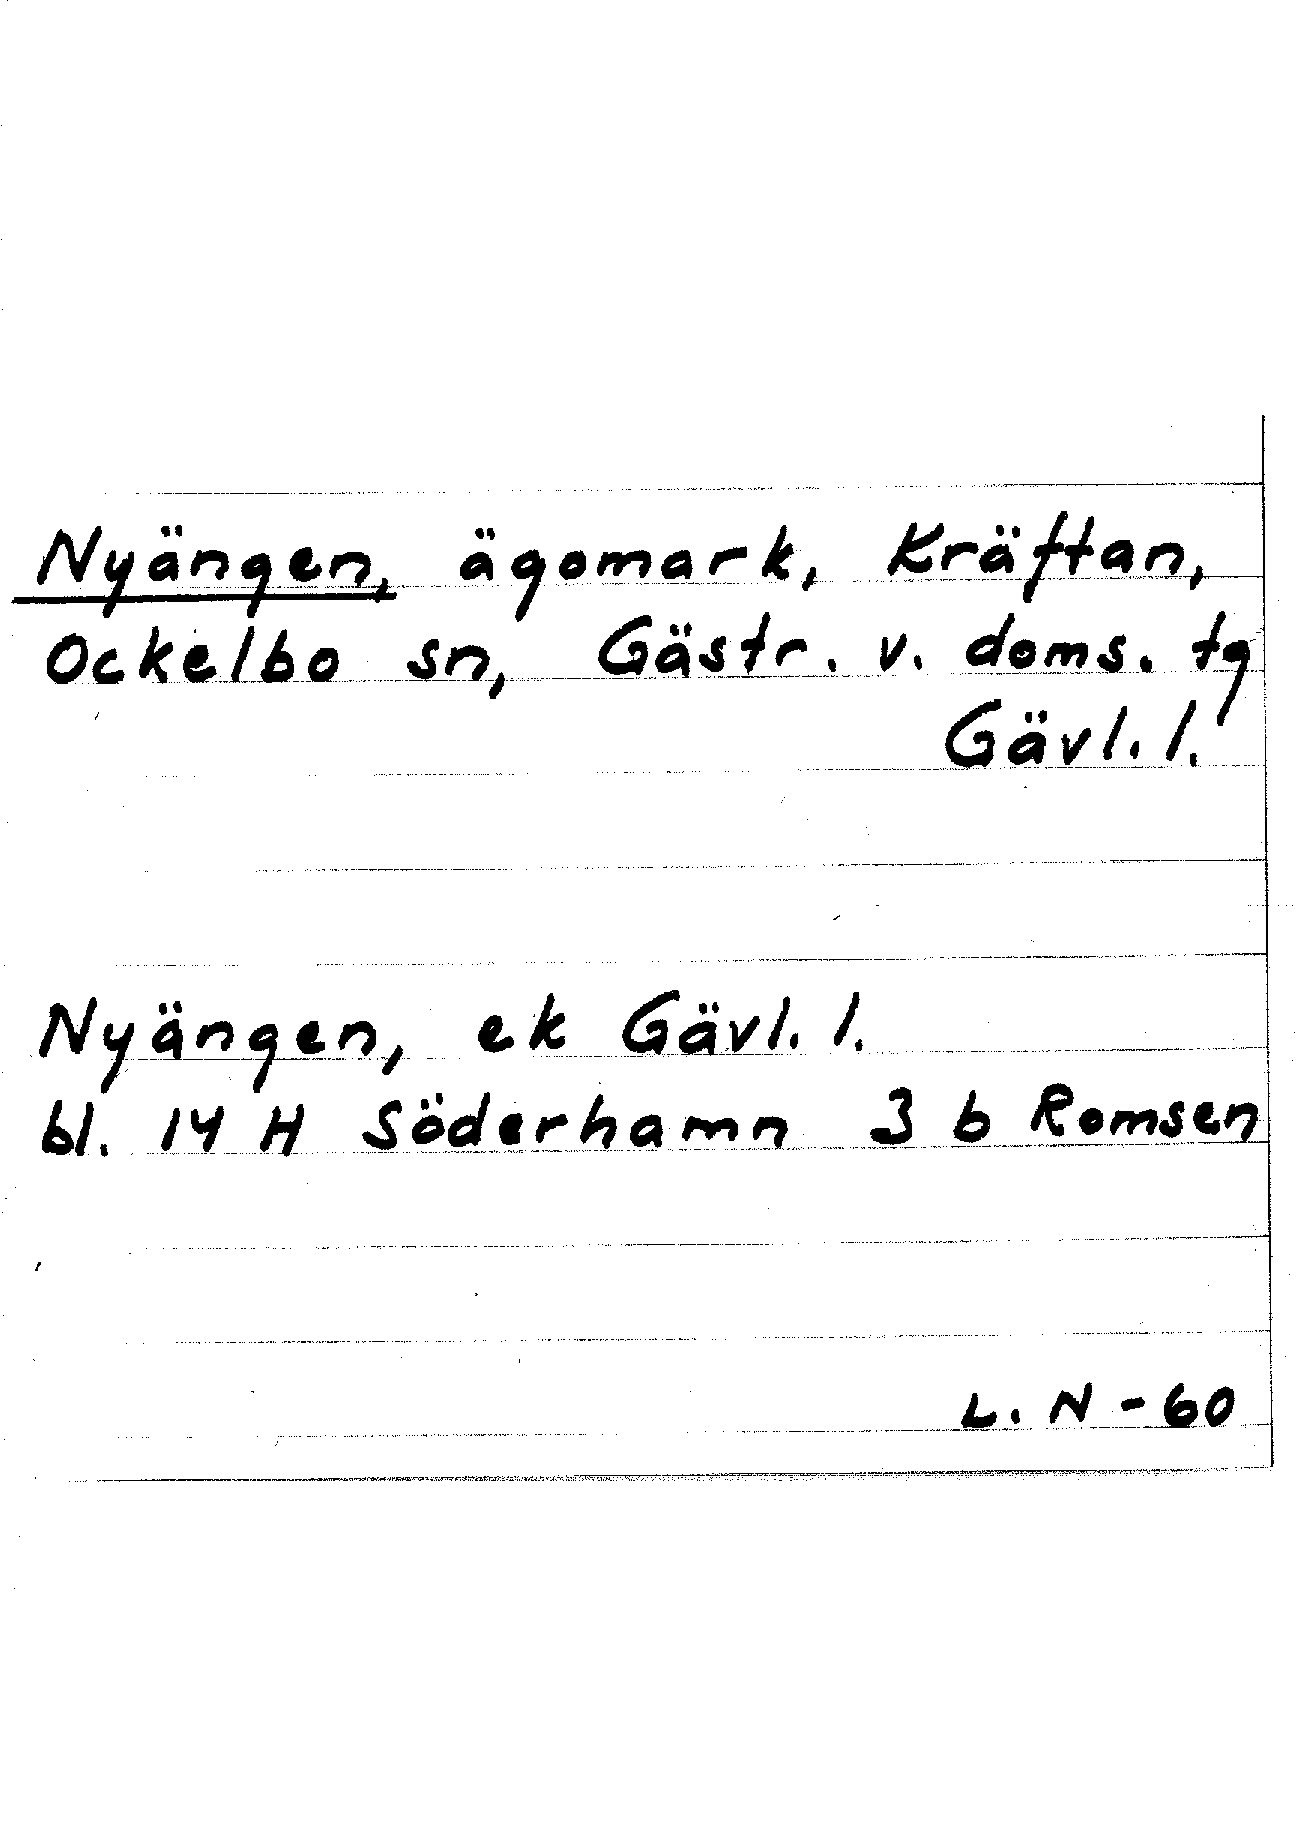 Nyängen, ägomark, Kräftan,
Ockelbo sn, Gästr. v. doms. tg
Gävl. l.
Nyängen, ek Gävl. l.
bl. 14 H Söderhamn 3 b Romsen
L. N - 60